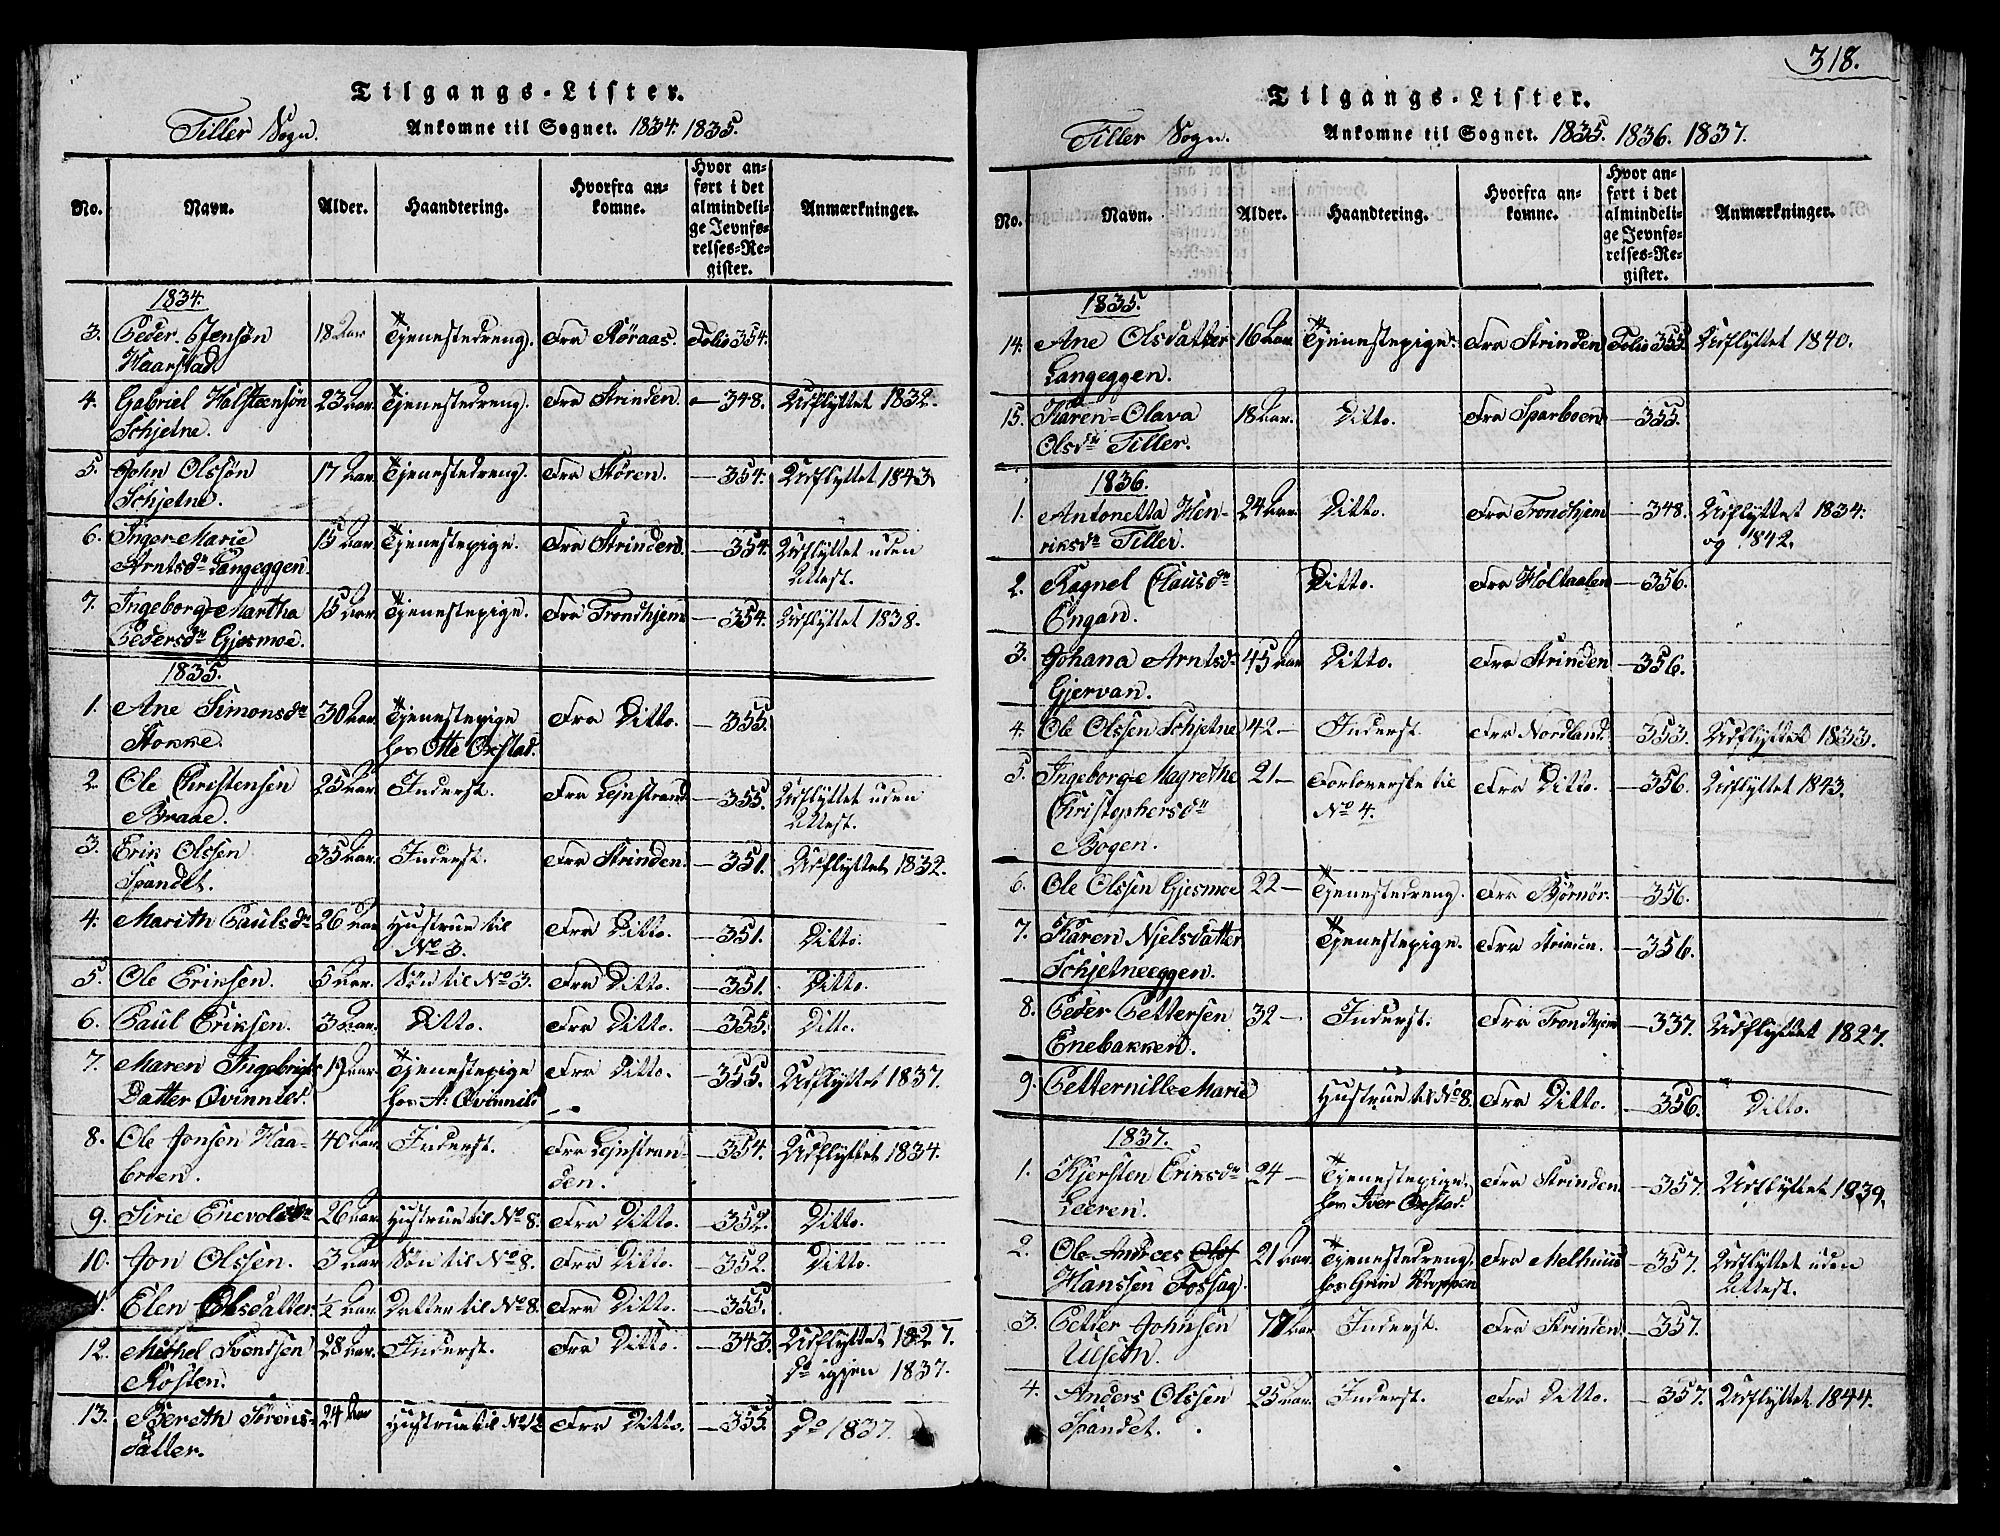 Tilgangs-Lister.
Tiller Sogn. Ankomne til Sognet. 1834. 1835.
No. Navn. Alder. Haandtering. Hvorfra ankomne. Hvor anført i det almindelige Jevnførelses-Register. Anmærkninger.
1834.
3. Peder Jensøn 18 Aar Tjenestedreng. Fra Røraas. Folio 354.
Haarstad
4. Gabriel Halsteensøn 23 Aar. Tjenestedreng. Fra Strinden. — 348. Udflyttet 1832.
Schjetne.
5. John Olssøn 17 Aar. Tjenestedreng. Fra Støren. — 354. Udflyttet 1843.
Schjetne.
6. Inger Marie 15 Aar. Tjenestepige. Fra Strinden. — 354. Udflyttet uden
Arntsdr Langeggen. Attest.
7. Ingeborg Martha 15 Aar. Tjenestepige. Fra Trondhjem — 354. Udflyttet 1838.
Pedersdr Gjesmoe.
1835.
1. Ane Simonsdr 30 Aar. Tjenestepige Fra Ditto. — 355.
Stokke. hos Otte Oxstad.
2. Ole Christensen 25 Aar. Inderst. Fra Lejnstrand — 355. Udflyttet uden
Braae. Attest.
3. Erik Olssen 35 Aar. Inderst. Fra Strinden. — 351. Udflyttet 1832.
Spandet.
4. Marith Paulsdr 26 Aar Hustrue til Fra Ditto. — 351. Ditto.
No 3.
5. Ole Eriksen. 5 Aar. Søn til No 3. Fra Ditto. — 351. Ditto.
6. Paul Eriksen. 3 Aar. Ditto. Fra Ditto. — 355. Ditto.
7. Maren Ingebrigts 19 Aar. Tjenestepige Fra Ditto. — 355. Udflyttet 1837.
Datter Qvinnild. hos A: Qvinnild
8. Ole Jonsen Haa- 40 Aar. Inderst. Fra Lejnstran- — 354. Udflyttet 1834.
broen. den.
9. Sirie Enevoldsdr 26 Aar. Hustrue til No 8. Fra Ditto. — 352. Ditto.
10. Jon Olssen. 3 Aar Søn til No 8. Fra Ditto. — 352. Ditto.
11. Elen Olsdatter ½ Aar. Datter til No 8. Fra Ditto. — 355.
12. Michel Svendsen 28 Aar. Inderst. Fra Ditto. — 343. Udflyttet 1827.
Rosten. Do igjen 1837.
13. Bereth Sørens- 24 Aar Hustrue til No 12 Fra Ditto. — 355. Do 1837.
datter.
318.
Tilgangs-Lister.
Tiller Sogn. Ankomne til Sognet. 1835. 1836. 1837.
No. Navn. Alder. Haandtering. Hvorfra ankomne. Hvor anført i det almindelige Jevnførelses-Register. Anmærkninger.
1835.
14. Ane Olsdatter 16 Aar. Tjenestepige. Fra Strinden Folio 355. Udflyttet 1840.
Langeggen.
15. Karen-Olava 18 Aar. Ditto. Fra Sparboen — 355.
Olsdr Tiller.
1836.
1. Antonetta Hen- 24 Aar. Ditto. Fra Trondhjem — 348. Udflyttet 1834.
riksdr Tiller. og 1842.
2. Ragnel Clausdr Ditto. Fra Holtaalen — 356.
Engan.
3. Johana Arntsdr 45 Aar Ditto. Fra Strinden — 356.
Gjervan.
4. Ole Olssen Schjetne 42 — Inderst. Fra Nordland. — 353. Udflyttet 1833.
5. Ingeborg Magrethe 21 — Forloverske til Fra Ditto. — 356. Udflyttet 1843.
Christophersdr No 4.
Bogen.
6. Ole Olssen Gjesmoe 22 — Tjenestedreng. Fra Bjørnør. — 356.
7. Karen Njelsdatter Tjenestepige. Fra Strinden. — 356.
Schjetneeggen.
8. Peder Pettersen 32 — Inderst. Fra Trondhjem — 337. Udflyttet 1827.
Enebakken.
9. Petternille Marie Hustrue til No 8. Fra Ditto. — 356. Ditto.
1837.
1. Kjersten Eriksdr 24 — Tjenestepige. Fra Strinden — 357. Udflyttet 1839.
Leeren. hos Iver Oxstad.
2. Ole Andreas Ols 21 Aar. Tjenestedreng. Fra Melhuus — 357. Udflyttet uden
Hanssen Fossag. hos Grim Kroppen Attest.
3. Petter Johnsen 77 Aar Inderst. Fra Strinden. — 357.
Ulseth.
4. Anders Olssen 25 Aar. Inderst. Fra Ditto. — 357. Udflyttet 1844.
Spandet.